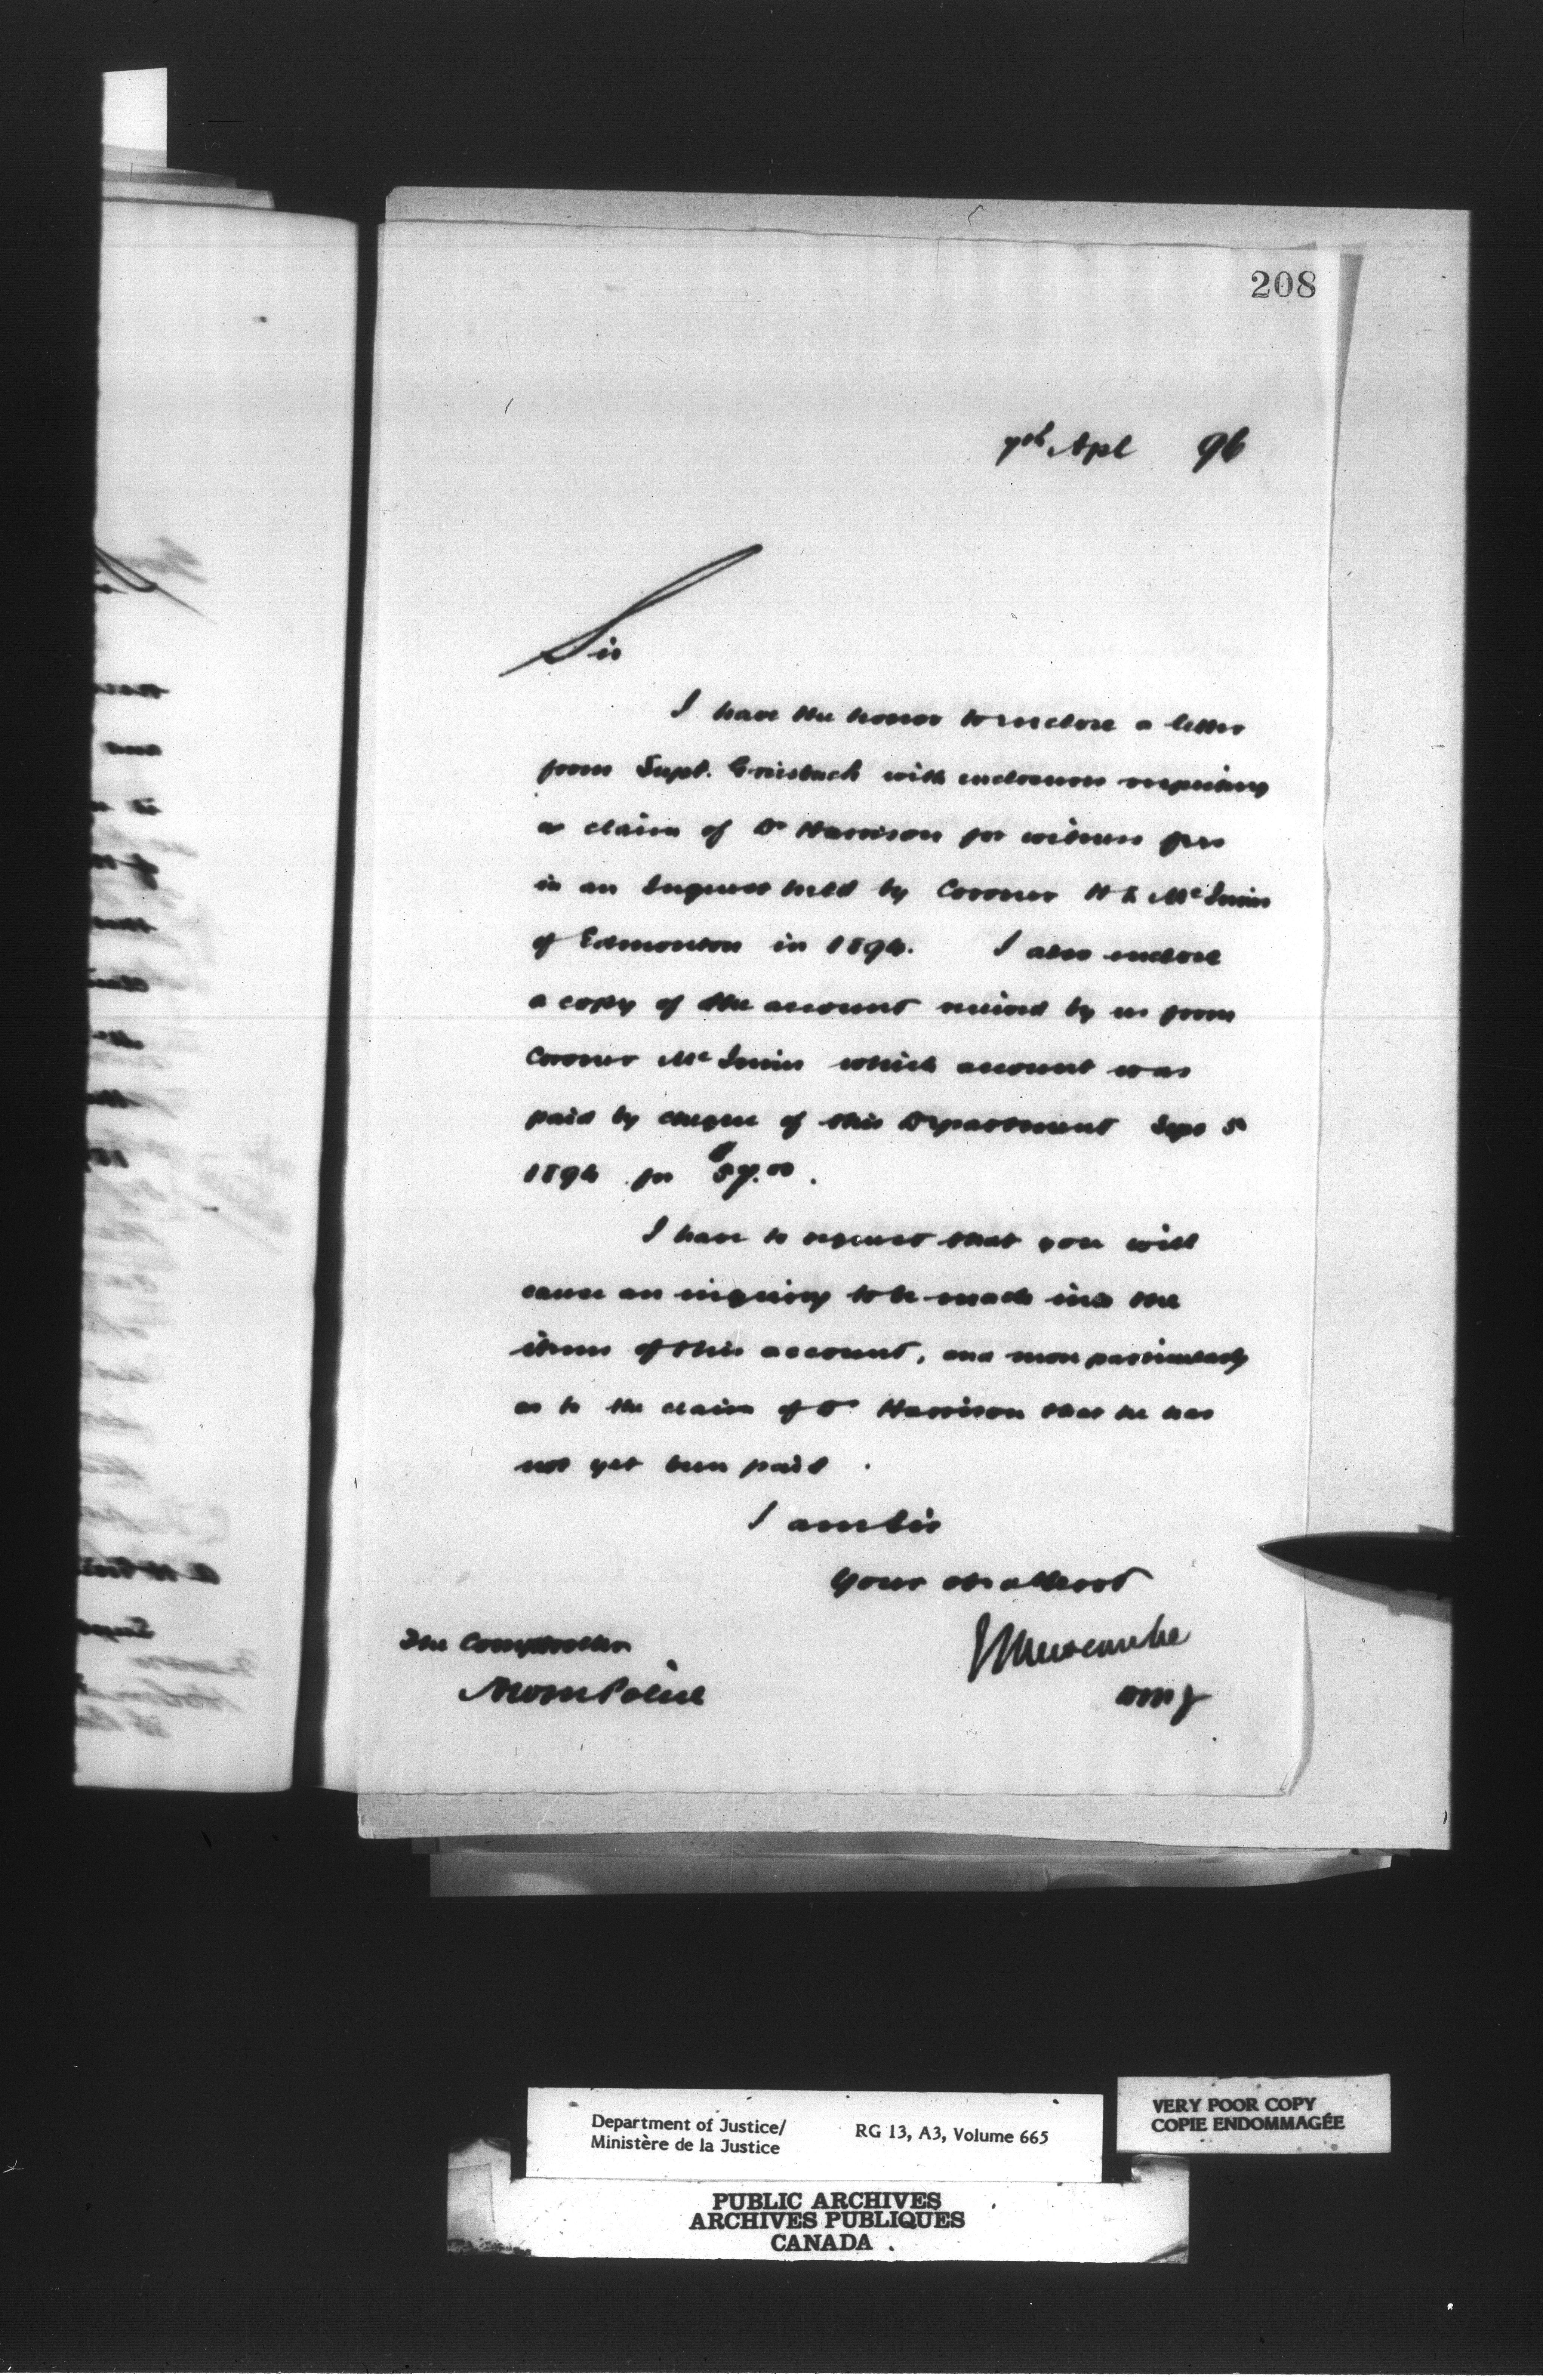 208
7th Apl 96
Sir
I have the honor to inclose a letter
from Supt. Griesbach with enclosures respecting
a claim of Dr Harrison for witness fees
in an Inquest held by Coroner H L McInnis
of Edmonton in 1894. I also enclose
a copy of the account received by us from
Coroner McInnis which account was
paid by cheque of this Department Sept 5
1894 for $57.00.
I have to request that you will
cause an inquiry to be made into the
items of this account, and more particularly
as to the claim of Dr Harrison that he has
not yet been paid.
I am Sir
Your ob. servt
The Comptroller
ELNewcombe
NWM Police
DMJ
Department of Justice/
Ministère de la Justice
RG 13, A3, Volume 665
VERY POOR COPY
COPIE ENDOMMAGÉE
PUBLIC ARCHIVES
ARCHIVES PUBLIQUES
CANADA